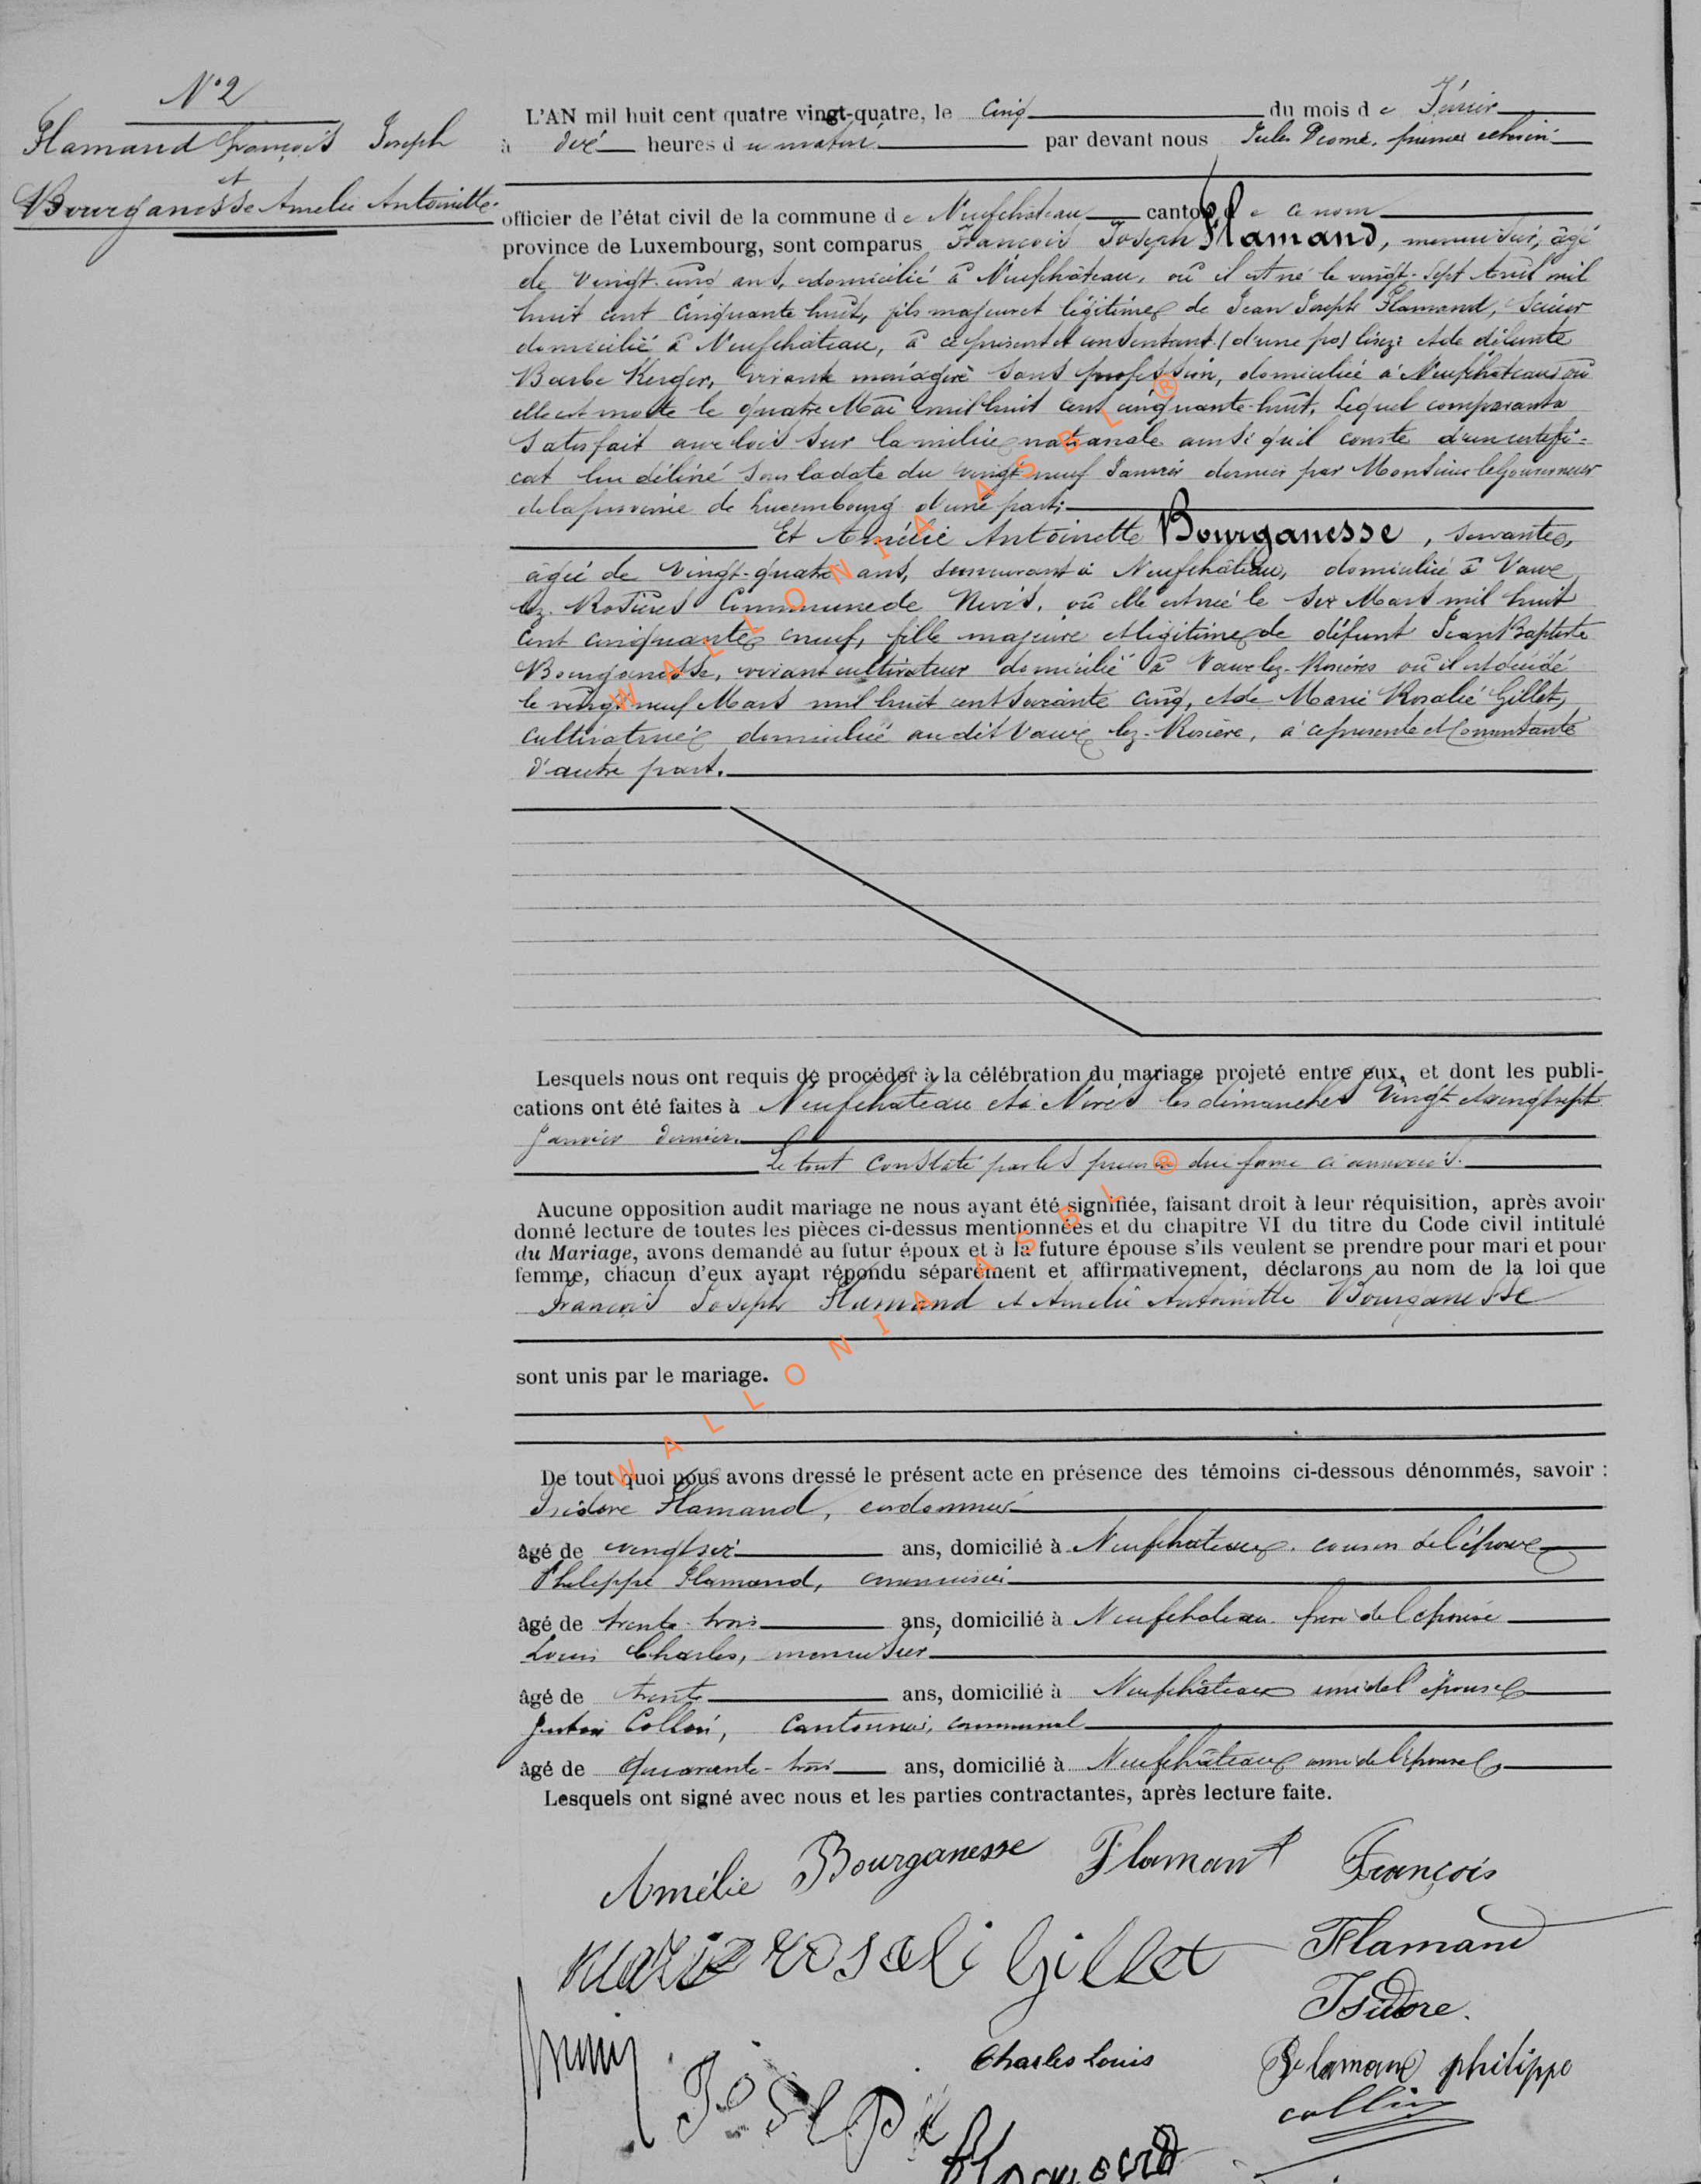 N° 2
Flamand François Joseph
et
Bourganesse Amelie Antoinette.
L'AN mil huit cent quatre vingt-quatre, le Cinq du mois de Février
à dix heures du matin par devant nous Jules premier echevin
officier de l'état civil de la commune de Neufchateau canton de ce nom
province de Luxembourg, sont comparus François Joseph Flamand, menuisier, âgé
de vingt-cinq ans, domicilié à Neufchâteau, où il est né le vingt-sept Avril mil
huit cent cinquante huit, fils majeur et légitime de Jean Joseph Flamand, Scieur
domicilié à Neufchâteau, à ce présent et consentant (d'une pa) lisez: et de défunte
Barbe vivante ménagère sans profession, domiciliée à Neufchâteau où
elle est morte le quatre Mai mil huit cent cinquante-huit, Lequel comparant a
satisfait aux lois sur la milice nationale ainsi qu'il conste d'un certifi-
cat lui délivré sous la date du vingt neuf Janvier dernier par Monsieur le Gouverneur
de la province de Luxembourg d'une part;
Et Amélie Antoinette Bourganesse, servante,
âgée de vingt-quatre ans, demeurant à Neufchâteau, domiciliée à Vaux
lez-Rosières Commune de Nives, où elle est née le six Mars mil huit
cent cinquante neuf, fille majeure et légitime de défunt Jean Baptiste
Bourganesse, vivant cultivateur domicilié à Vaux-lez-Rosières où il est décédé
le vingt neuf Mars mil huit cent soixante cinq, et de Marie Rosalie Gillet,
cultivatrice domiciliée audit Vaux lez-Rosière, à ce présente et consentante
d'autre part.
Lesquels nous ont requis de procéder à la célébration du mariage projeté entre eux, et dont les publi-
cations ont été faites à Neufchateau et à Nives les dimanches vingt et vingt sept
Janvier dernier.
Le tout constaté par les pieces en due forme ci annexées.
Aucune opposition audit mariage ne nous ayant été signifiée, faisant droit à leur réquisition, après avoir
donné lecture de toutes les pièces ci-dessus mentionnées et du chapitre VI du titre du Code civil intitulé
du Mariage, avons demandé au futur époux et à la future épouse s'ils veulent se prendre pour mari et pour
femme, chacun d'eux ayant répondu séparément et affirmativement, déclarons au nom de la loi que
François Joseph Flamand et Amelie Antoinette Bourganesse
sont unis par le mariage.
De tout quoi nous avons dressé le présent acte en présence des témoins ci-dessous dénommés, savoir :
Isidore Flamand, cordonnier
âgé de vingt six ans, domicilié à Neufchateau cousin de l'époux
Philippe Flamand, menuisier
âgé de trente-trois ans, domicilié à Neufchateau frere de l'epoux
Louis Charles, menuisier
âgé de trente ans, domicilié à Neufchâteau ami de l'épouse
Collin, Cantonnier communal
âgé de quarante-trois ans, domicilié à Neufchâteau ami de l'épouse
Lesquels ont signé avec nous et les parties contractantes, après lecture faite.
Amélie Bourganesse Flamant François
marie rosali Gillet Flamand
Isidore.
Charles Louis Flamand philippe
Joseph collin
Flamand
WALLONIA ASBL ®
WALLONIA ASBL ®